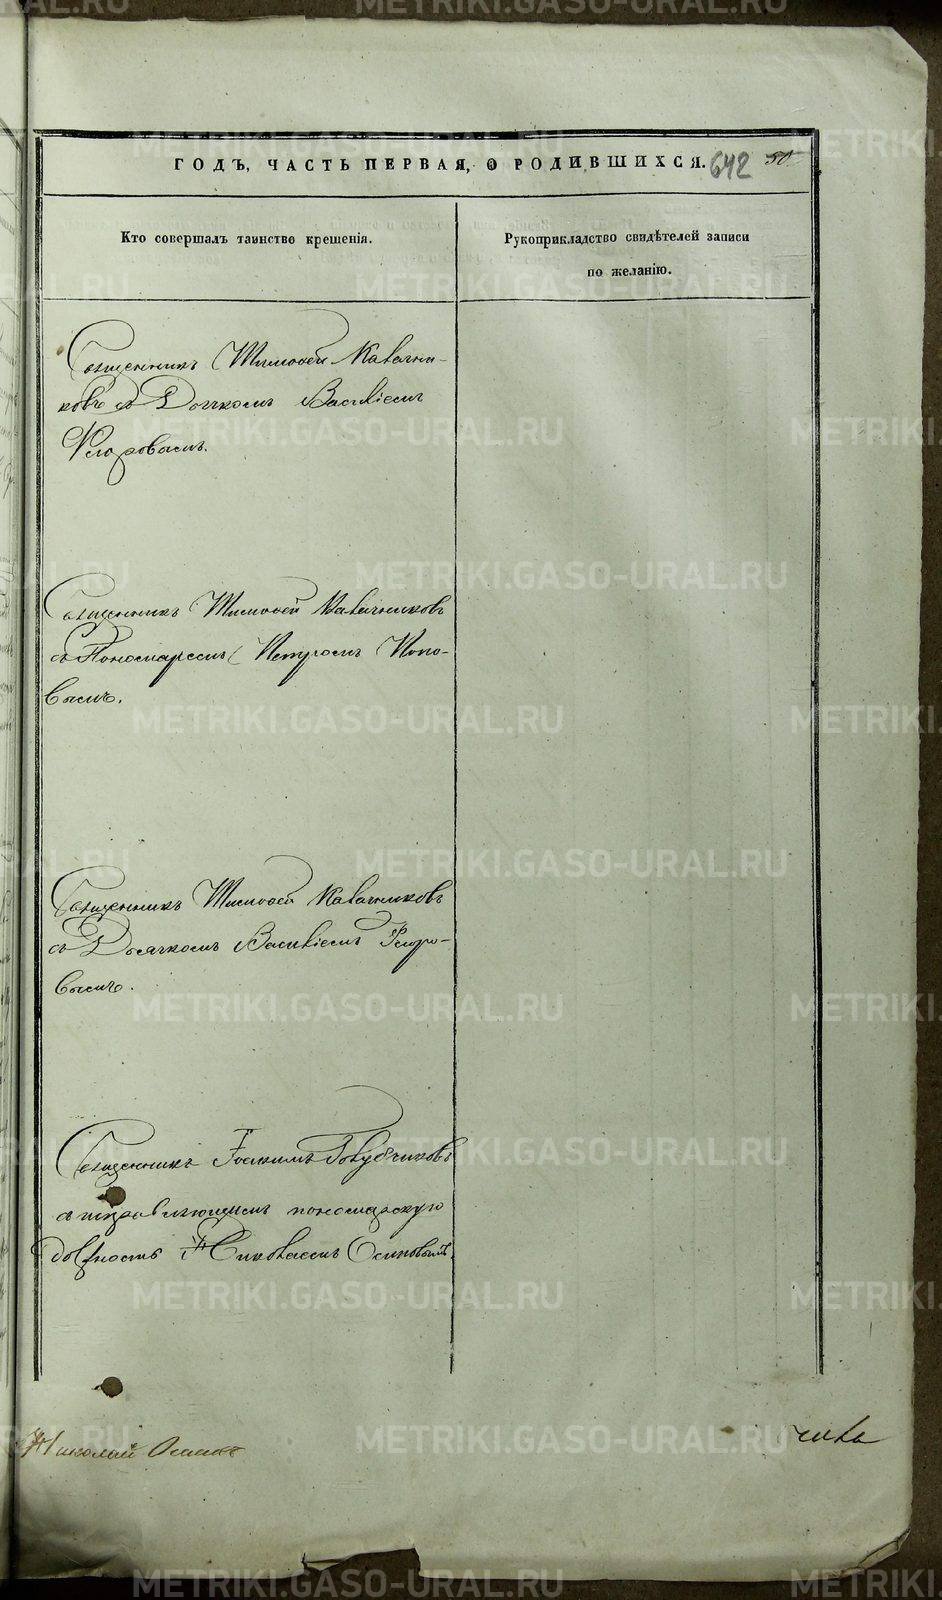 ГОДЪ, ЧАСТЬ ПЕРВАЯ, О РОДИВШИХСЯ. 642 50
Кто совершалъ таинство крещенія.
Рукоприкладство свидѣтелей записи
по желанію.
Священникъ Тимоѳей Калачни-
ковъ съ Дьячкомъ Василіемъ
Ѳедоровымъ.
Священникъ Тимоѳей Калачниковъ
съ Пономаремъ Петромъ Попо-
вымъ.
Священникъ Тимоѳей Калачниковъ
съ Дьячкомъ Василіемъ Ѳедоро-
вымъ.
Священникъ Іоакимъ Голубчиковъ
съ исправляющимъ пономарскую
должность Николаемъ Осиповымъ.
Николай
METRIKI.GASO-URAL.RU